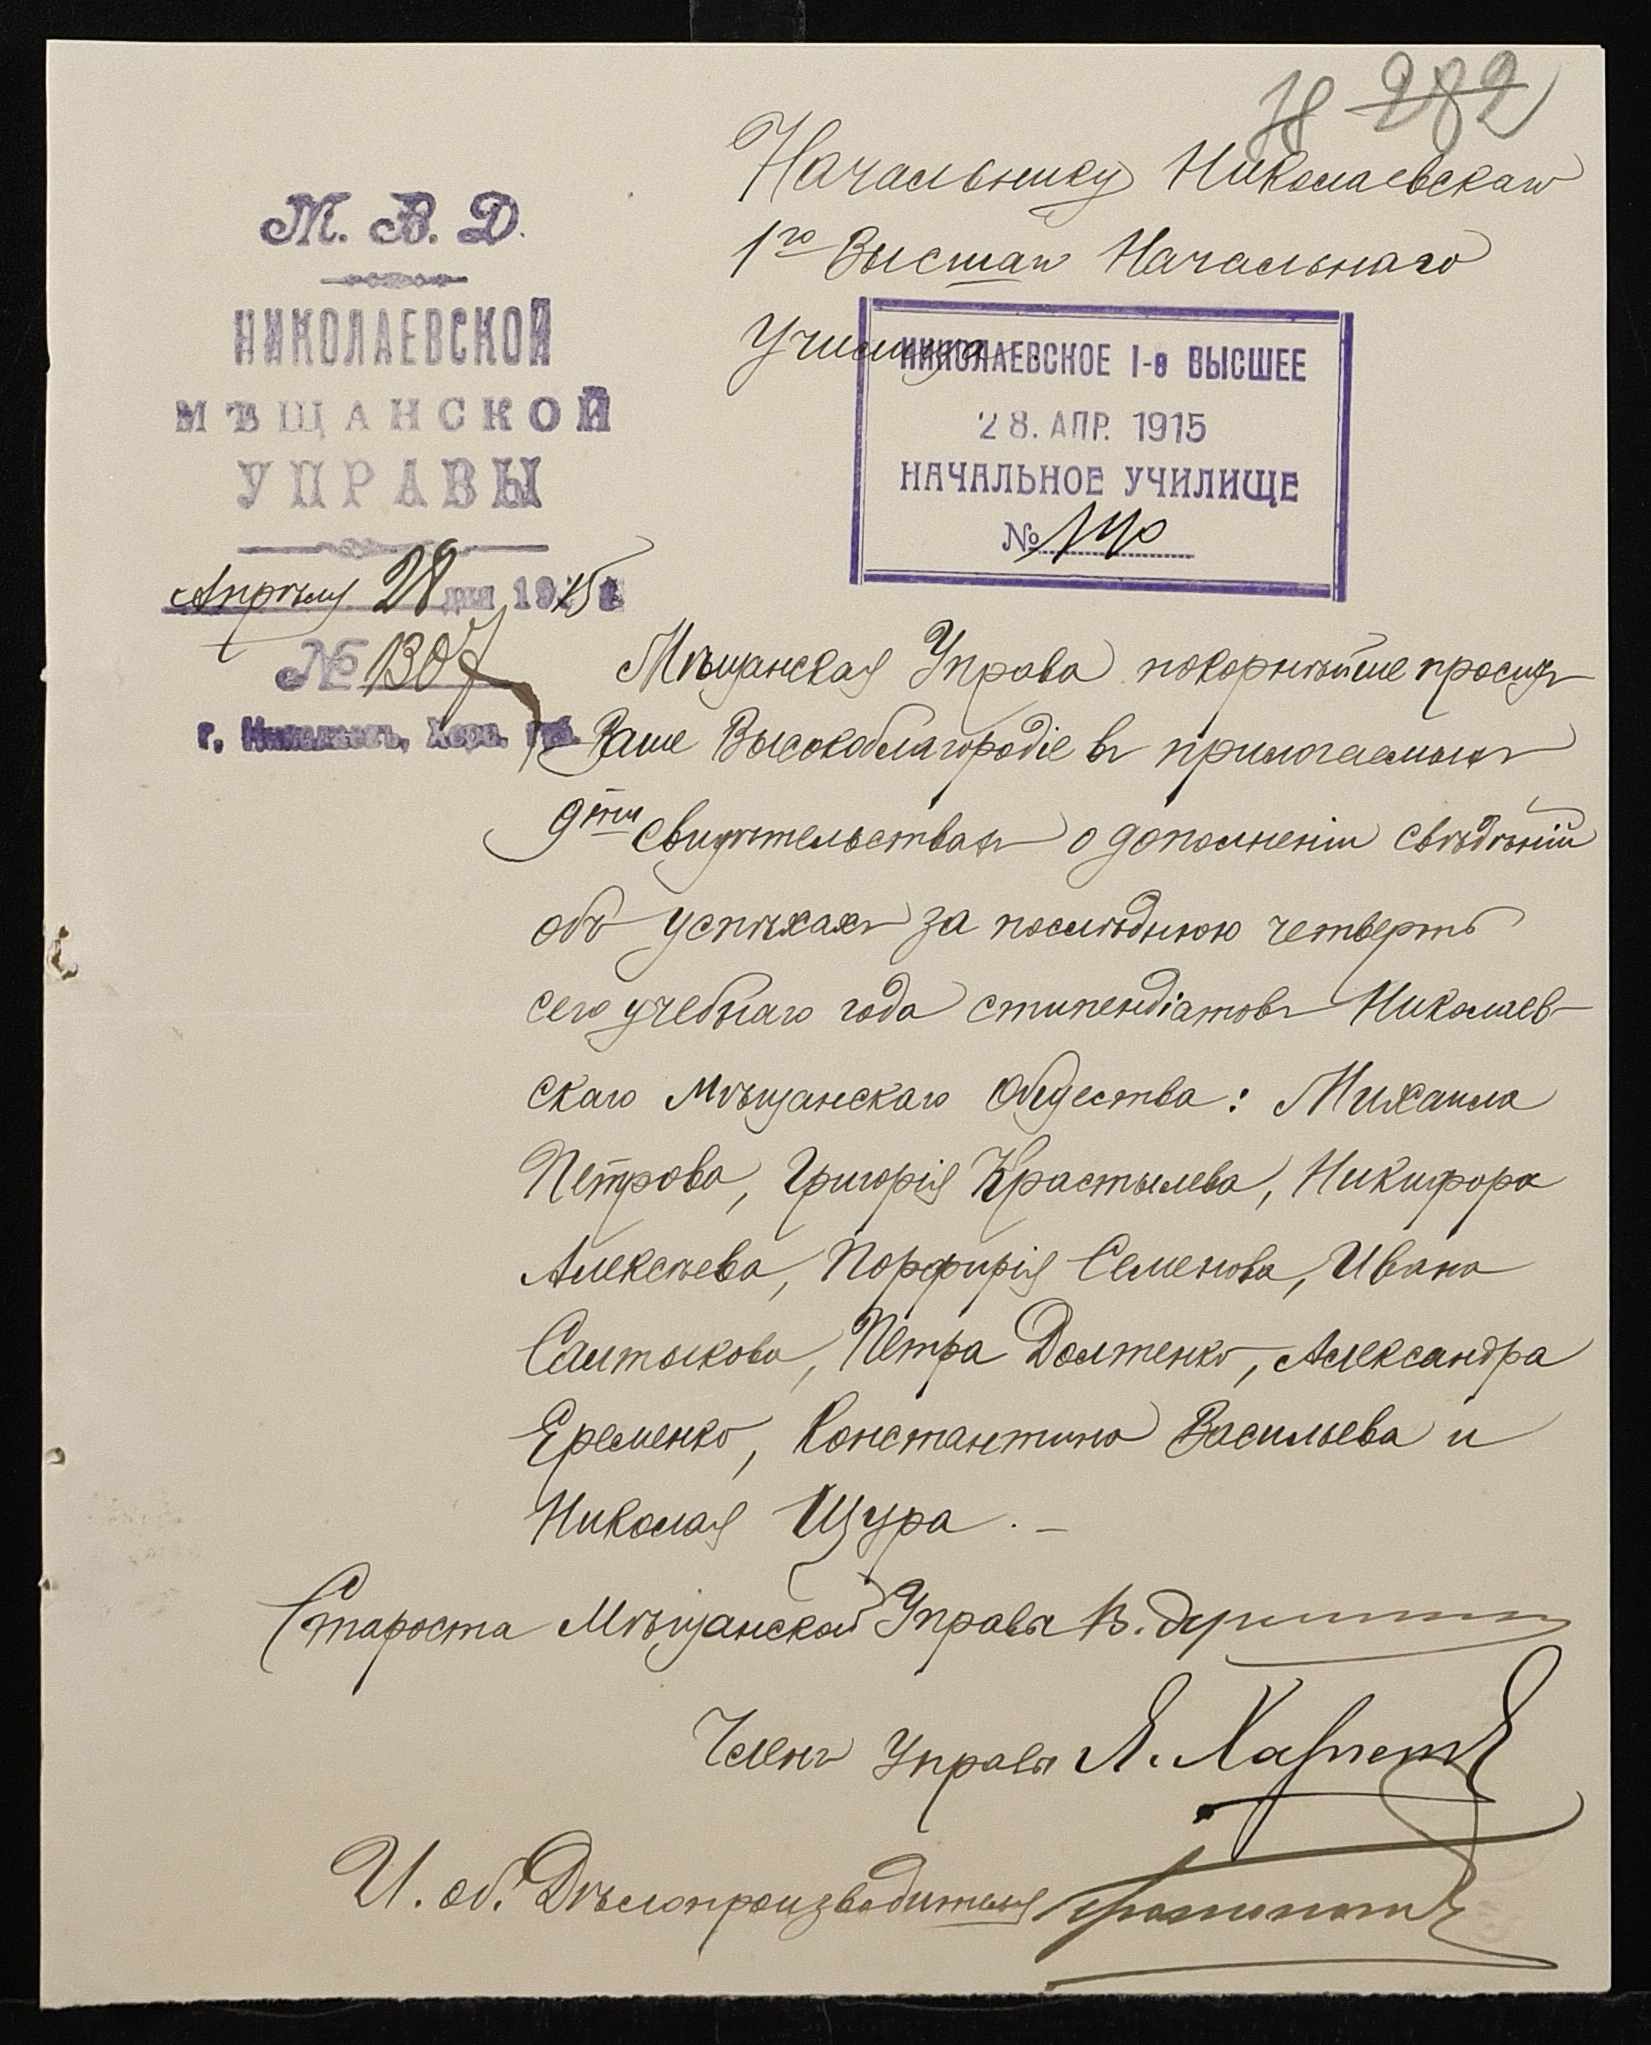 282
М. В. Д.
НИКОЛАЕВСКОЙ
МѢЩАНСКОЙ
УПРАВЫ
Апрѣля 28 дня 1915 г.
№ 1307
г. Николаевъ, Херс. губ.
Начальнику Николаевскаго
1го Высшаго Начальнаго
Училища
НИКОЛАЕВСКОЕ 1-е ВЫСШЕЕ
28. АПР. 1915
НАЧАЛЬНОЕ УЧИЛИЩЕ
№ 140
Мѣщанская Управа покорнѣйше проситъ
Ваше Высокоблагородіе въ прилагаемыхъ
9ти свидѣтельствахъ о дополненіи свѣдѣній
объ успѣхахъ за послѣднюю четверть
сего учебнаго года стипендіатовъ Николаев-
скаго Мѣщанскаго Общества: Михаила
Петрова, Григорія Крастылева, Никифора
Алексѣева, Порфирія Семенова, Ивана
Салтыкова, Петра Долтенко, Александра
Еременко, Константина Васильева и
Николая Щура. —
Староста Мѣщанской Управы В.
Членъ Управы Я.
И. об. Дѣлопроизводителя